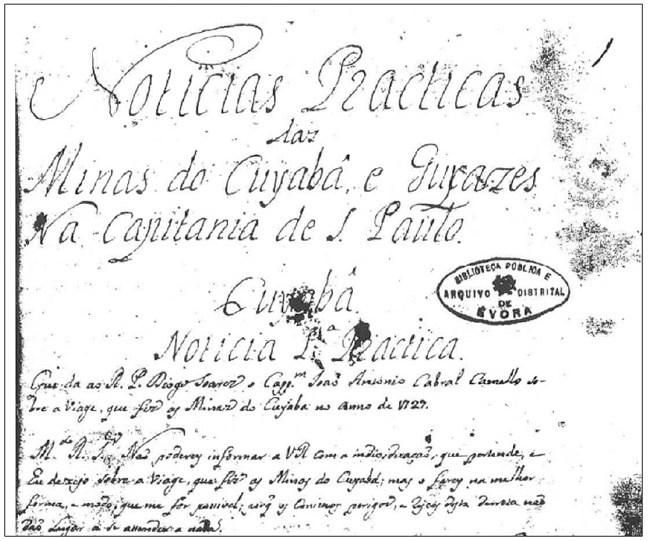 Noticias Practicas
das
Minas do Cuyabâ, e Guyazes
Na Capitania de S. Paulo.
BIBLIOTECA PÚBLICA E
ARQUIVO DISTRITAL
DE
ÉVORA
Cuyabâ
Noticia 1.ª Practica.
Que da ao R. P. Diogo Soares o Capp.m João Antonio Cabral Camello so-
bre a Viage, que fez ás Minas do Cuyabá no anno de 1727.
M. R. Não poderey informar a VR com a individuação, que pertende, e
Eu dezejo sobre a Viage, que fiz ás Minas do Cuyabá; mas o farey na melhor
forma, e modo, que me for possivel; porq os continuos perigos, e desta derrota não
dão lugar a se attender a nada.